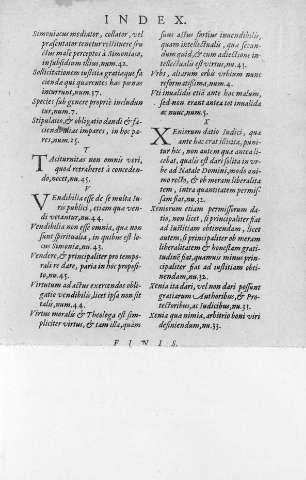 INDEX.
Simoniacus mediator, collator, vel
præsentator tenetur restituere fru
ctus malè perceptos à Simoniaco,
in subsidium illius, num. 42.
Sollicitationem iustitiæ gratiæque fa
cienda qui quærentes has pœnas
incurrunt, num. 37.
Species sub genere propriè includun
tur, num. 7.
Stipulatio, & obligatio dandi & fa-
ciendi impares, in hoc pa
res, num. 25.
T
Taciturnitas non omnis verè,
quod retraheret à conceden-
do, nocet, nu. 45.
V
Vendibilia esse de se multa Iu-
ris publici, etiam qua ven-
di vetantur, nu. 44.
Vendibilia non esse omnia, qua non
sunt spiritualia, in quibus est lo-
cus Simonia, nu. 43.
Vendere, & principaliter pro tempo-
rali re dare, paria in hoc proposi-
to, nu. 45.
Virtutum ad actus exercendos obli-
gatio vendibilis, licet ipsa non sit
talis, num. 44.
Virtus moralis & Theologa est sim-
pliciter virtus, & tam illa, quàm
suus actus fortius inuendibilis,
quam intellectualis, qua secun-
dum quid, & cum adiectione in-
tellectualis est virtus, nu. 43.
Vrbs, aliarum orbis urbium nunc
reformatissima, num. 4.
Vti inualidis etiā ante hac malum,
sed non erant antea tot inualida
ac nunc, num. 5.
X
Xeniorum datio Iudici, qua
ante hac erat illicita, puni-
tur hic, non autem qua antea li-
cebat, qualis est dari solita in vr-
be ad Natale Domini, modo ani-
mo recto, & ob meram liberalita
tem, intra quantitatem permis-
sam fiat, nu. 32.
Xeniorum etiam permissorum da-
tio, non licet, si principaliter fiat
ad iustitiam obtinendam, licet
autem, si principaliter ob meram
liberalitatem & honestam grati-
tudinē fiat, quamuis minus prin-
cipaliter fiat ad iustitiam obti-
nendam, nu. 32.
Xenia ita dari, vel non dari possunt
gratiarum Authoribus, & Pro-
tectoribus, ac Iudicibus, nu. 33.
Xenia qua nimia, arbitrio boni viri
definiendum, nu. 33.
FINIS.